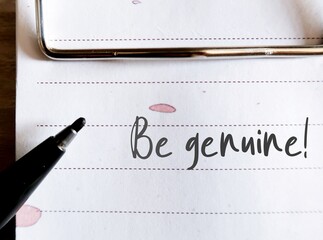 Be genuine!